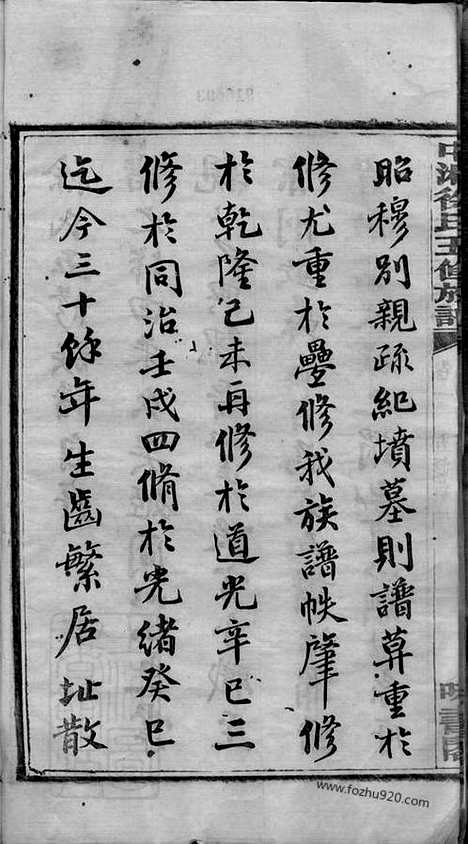 中湘徐氏五修族譜
昭穆別親疏紀墳墓則譜莫重於
修尤重於疊修我族譜帙肇修
於乾隆己未再修於道光辛巳三
修於同治壬戌四脩於光緒癸巳
迄今三十餘年生齒繁居址散
www.fozhu920.com